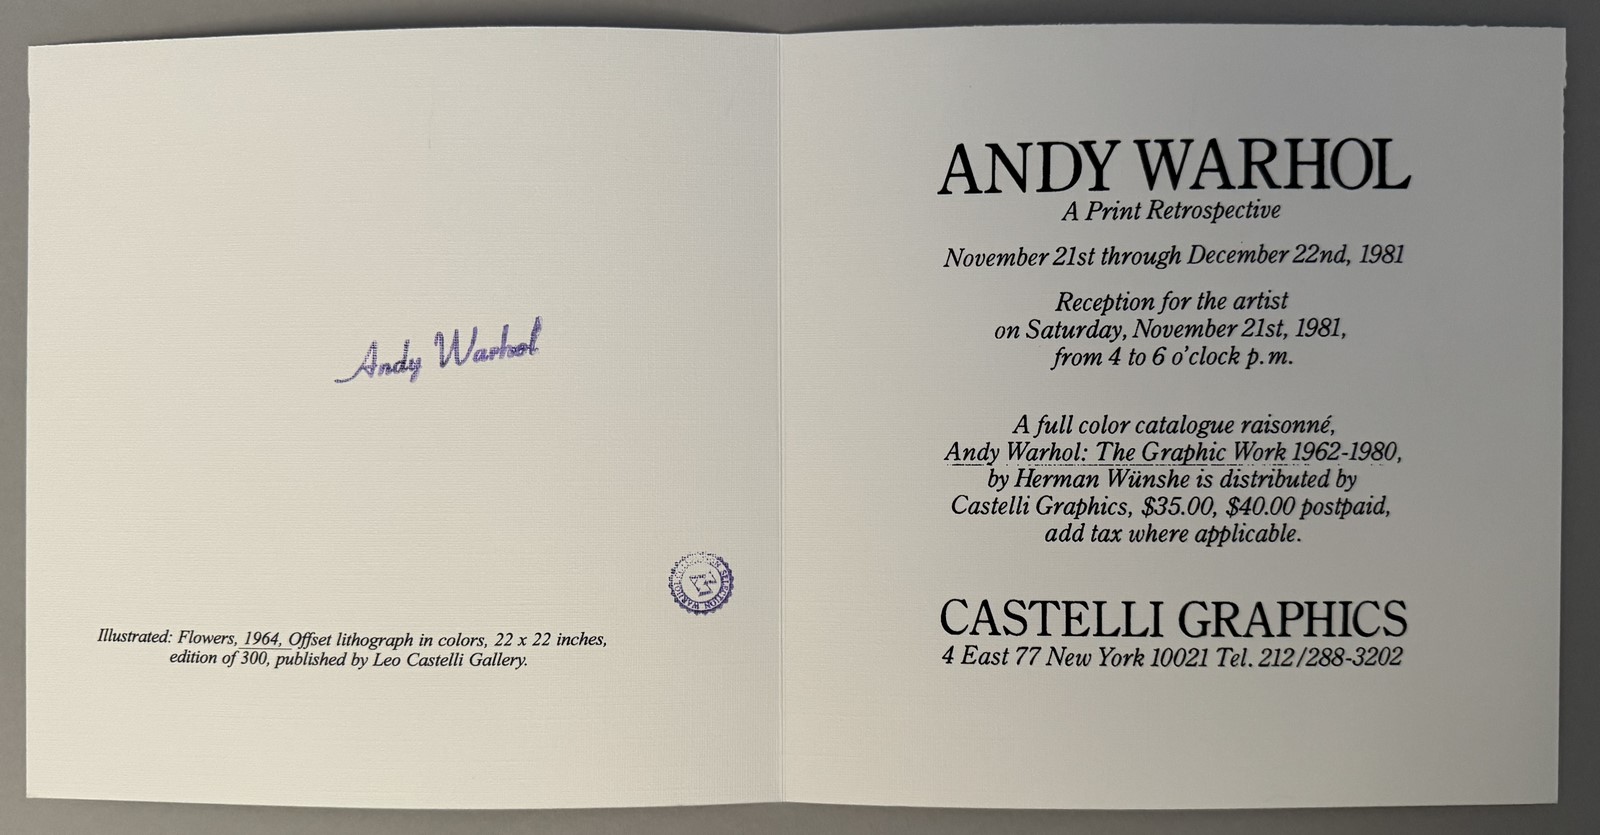 Andy Warhol
Illustrated: Flowers, 1964, Offset lithograph in colors, 22 x 22 inches,
edition of 300, published by Leo Castelli Gallery.
ANDY WARHOL
A Print Retrospective
November 21st through December 22nd, 1981
Reception for the artist
on Saturday, November 21st, 1981,
from 4 to 6 o'clock p.m.
A full color catalogue raisonné,
Andy Warhol: The Graphic Work 1962-1980,
by Herman Wünshe is distributed by
Castelli Graphics, $35.00, $40.00 postpaid,
add tax where applicable.
CASTELLI GRAPHICS
4 East 77 New York 10021 Tel. 212/288-3202